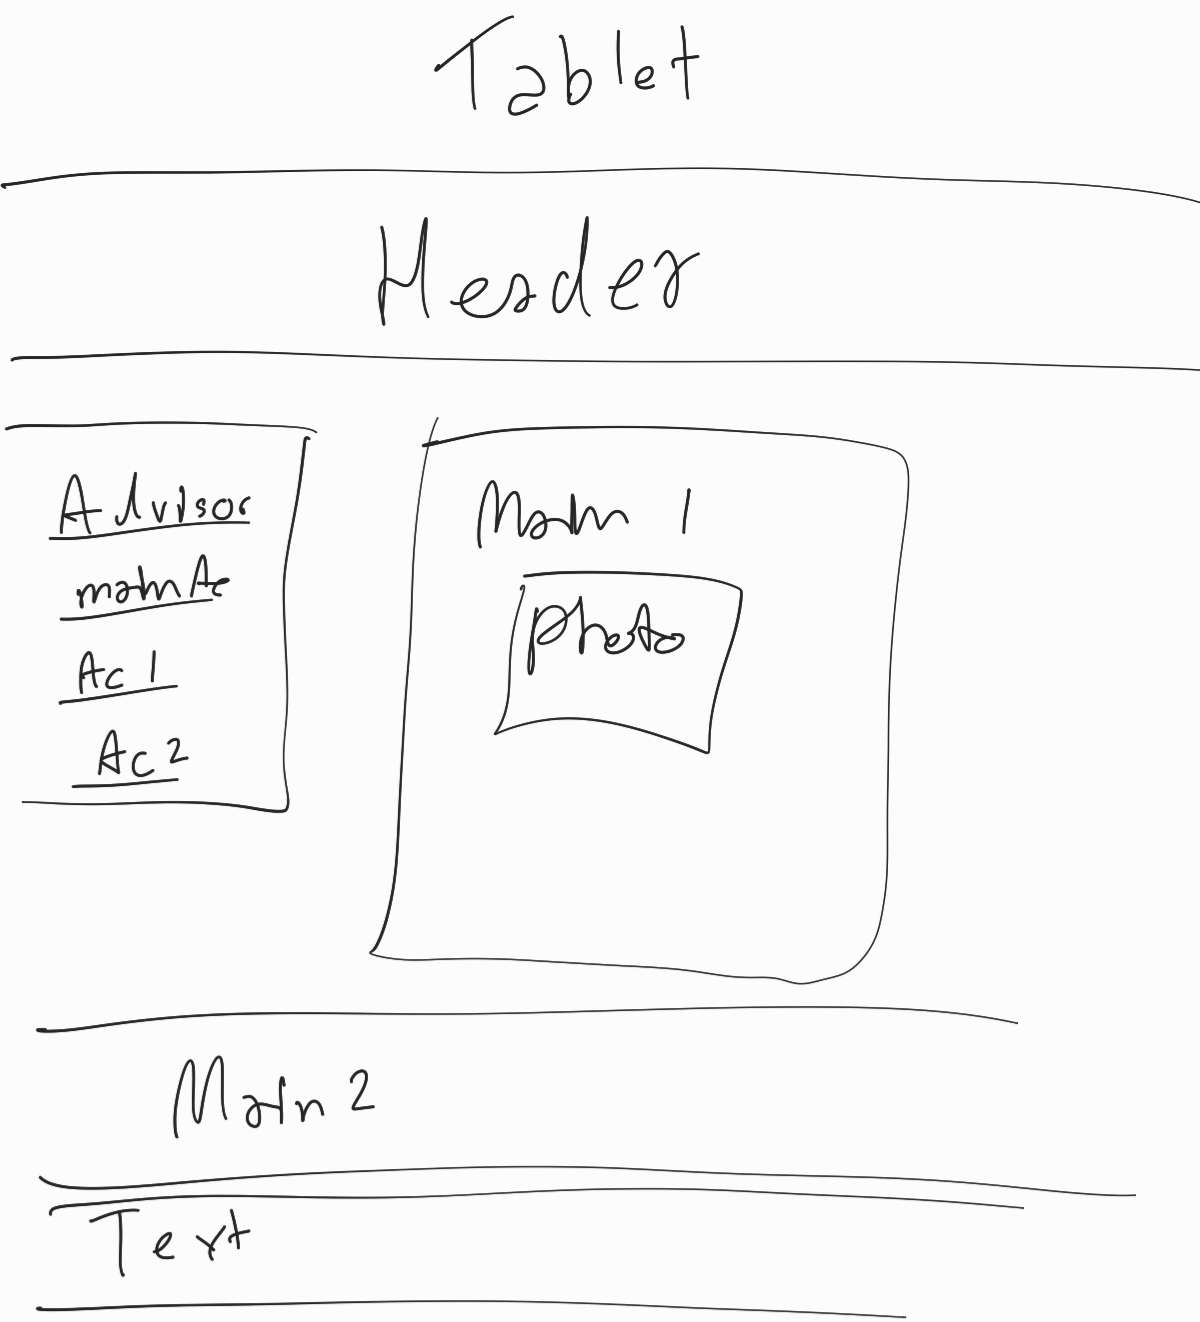 Tablet
Header
Advisor
main Ac
Ac 1
Ac 2
Main 1
Photo
Main 2
Text